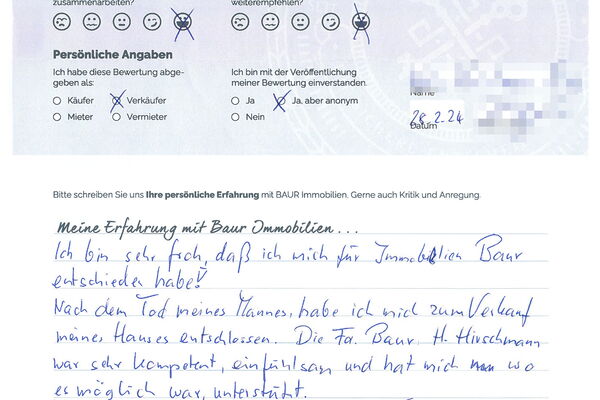 zusammenarbeiten?
weiterempfehlen?
Persönliche Angaben
Ich habe diese Bewertung abge-
geben als:
Käufer Verkäufer
Mieter Vermieter
Ich bin mit der Veröffentlichung
meiner Bewertung einverstanden.
Ja Ja, aber anonym
Nein
Name
28.2.24
Datum
Bitte schreiben Sie uns Ihre persönliche Erfahrung mit BAUR Immobilien. Gerne auch Kritik und Anregung.
Meine Erfahrung mit Baur Immobilien...
Ich bin sehr froh, daß ich mich für Immobilien Baur
entschieden habe!
Nach dem Tod meines Mannes, habe ich mich zum Verkauf
meines Hauses entschlossen. Die Fa. Baur, H. Hirschmann
war sehr kompetent, einfühlsam und hat mich wo
es möglich war, unterstützt.